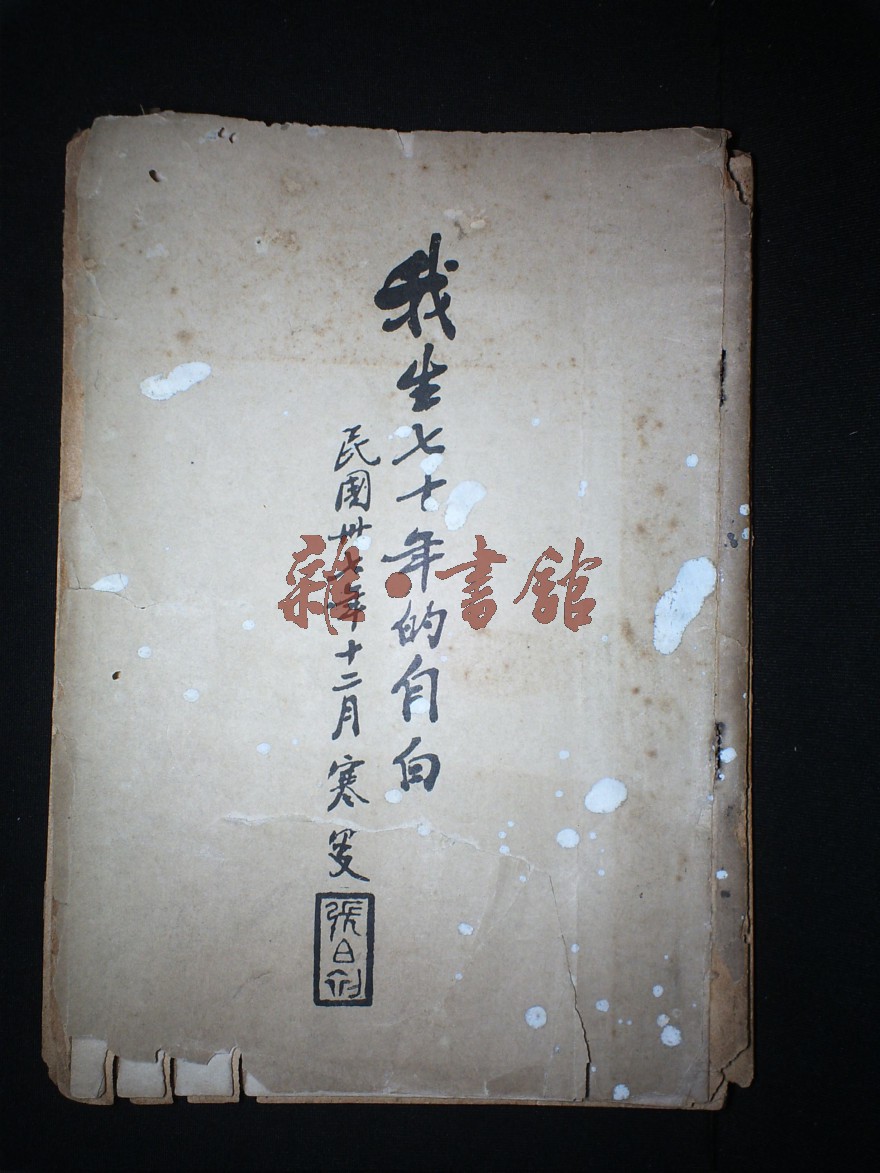 我生七十年的自白
民國卅年十二月 寒叟
張公制
雜·書館